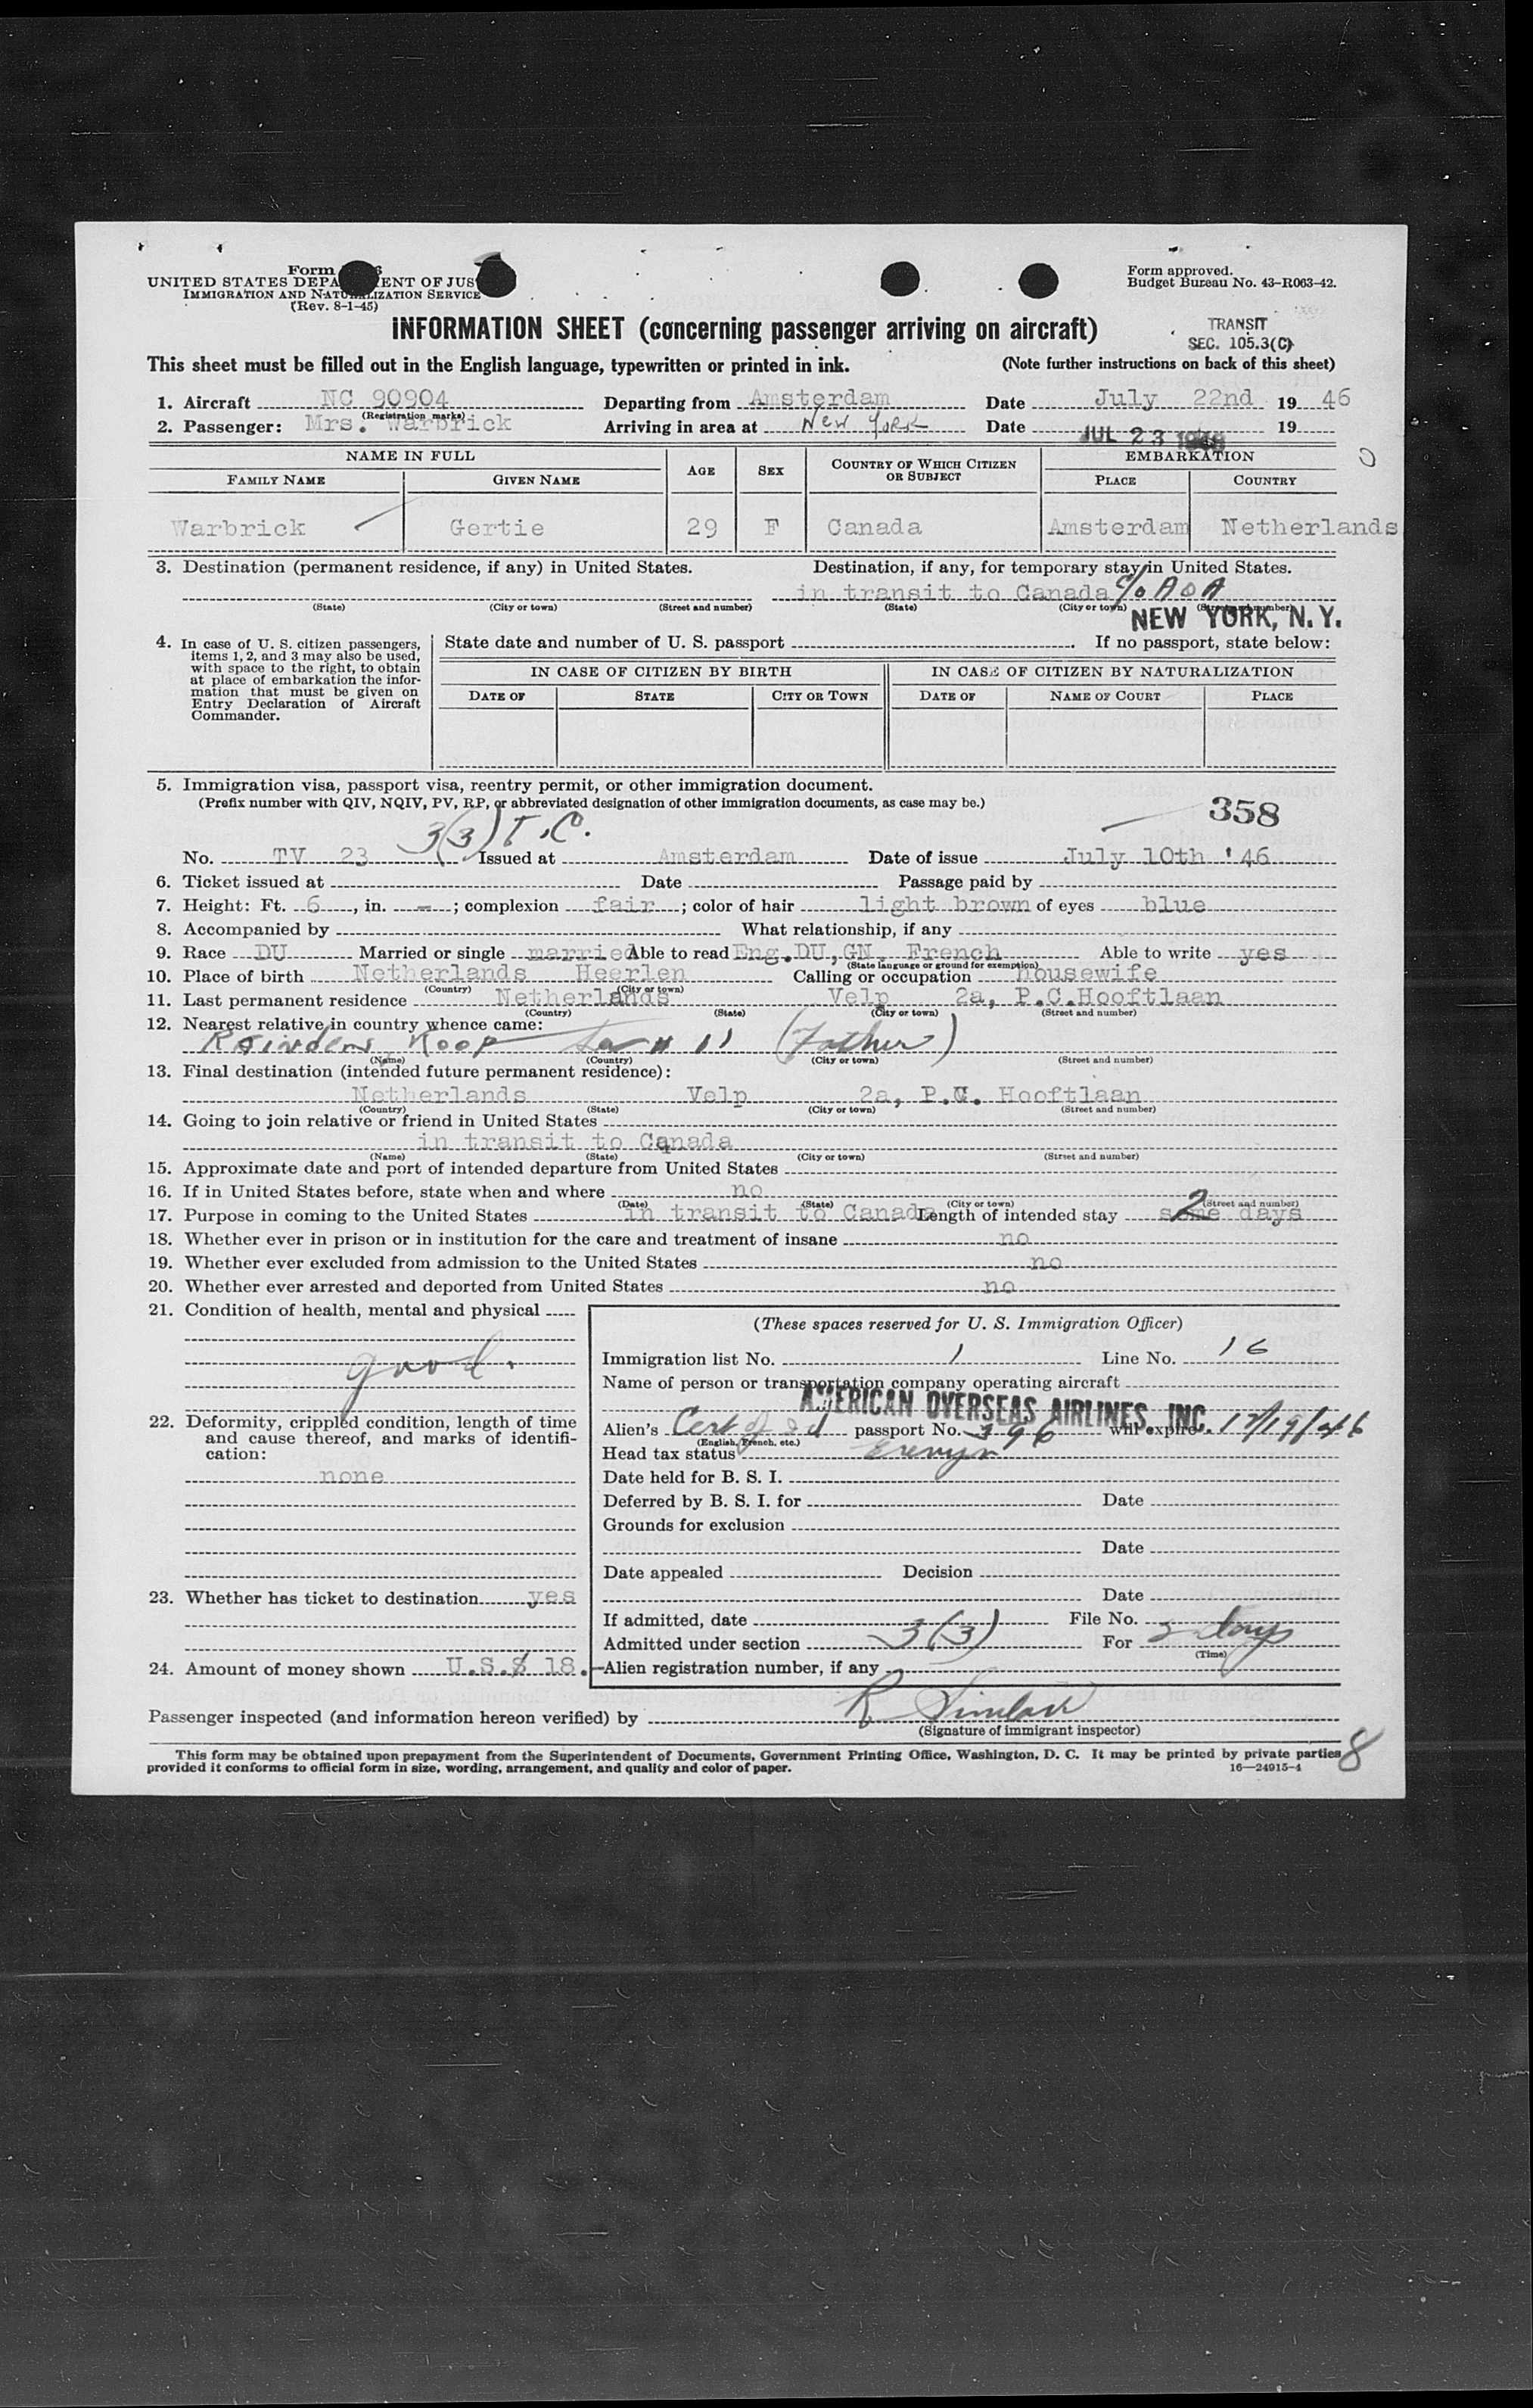 Form
UNITED STATES DEPA ENT OF JUS
IMMIGRATION AND NATURALIZATION SERVICE
(Rev. 8-1-45)
Form approved.
Budget Bureau No. 43-R063-42.
INFORMATION SHEET (concerning passenger arriving on aircraft)
TRANSIT
SEC. 105.3(C)
This sheet must be filled out in the English language, typewritten or printed in ink. (Note further instructions on back of this sheet)
1. Aircraft NC 90904 Departing from Amsterdam Date July 22nd 19 46
(Registration marks)
2. Passenger: Mrs. Warbrick Arriving in area at New York Date JUL 23 1946 19
NAME IN FULL AGE SEX COUNTRY OF WHICH CITIZEN OR SUBJECT EMBARKATION
FAMILY NAME GIVEN NAME PLACE COUNTRY
Warbrick Gertie 29 F Canada Amsterdam Netherlands
3. Destination (permanent residence, if any) in United States. Destination, if any, for temporary stay in United States.
in transit to Canada c/o AOA
(State) (City or town) (Street and number) (State) (City or town) (Street and number)
NEW YORK, N.Y.
4. In case of U. S. citizen passengers, items 1, 2, and 3 may also be used, with space to the right, to obtain at place of embarkation the information that must be given on Entry Declaration of Aircraft Commander.
State date and number of U. S. passport . If no passport, state below:
IN CASE OF CITIZEN BY BIRTH IN CASE OF CITIZEN BY NATURALIZATION
DATE OF STATE CITY OR TOWN DATE OF NAME OF COURT PLACE
5. Immigration visa, passport visa, reentry permit, or other immigration document.
(Prefix number with QIV, NQIV, PV, RP, or abbreviated designation of other immigration documents, as case may be.)
358
3(3) T.C.
No. TV 23 Issued at Amsterdam Date of issue July 10th '46
6. Ticket issued at Date Passage paid by
7. Height: Ft. 6, in. - ; complexion fair; color of hair light brown of eyes blue
8. Accompanied by What relationship, if any
9. Race DU Married or single married Able to read Eng.DU,GN, French Able to write yes
(State language or ground for exemption)
10. Place of birth Netherlands Heerlen Calling or occupation housewife
(Country) (City or town)
11. Last permanent residence Netherlands Velp 2a, P.C.Hooftlaan
(Country) (State) (City or town) (Street and number)
12. Nearest relative in country whence came:
Koop # 11 (Father)
(Name) (Country) (City or town) (Street and number)
13. Final destination (intended future permanent residence):
Netherlands Velp 2a, P.C. Hooftlaan
(Country) (State) (City or town) (Street and number)
14. Going to join relative or friend in United States
in transit to Canada
(Name) (State) (City or town) (Street and number)
15. Approximate date and port of intended departure from United States
16. If in United States before, state when and where no
(Date) (State) (City or town) (Street and number)
17. Purpose in coming to the United States in transit to Canada Length of intended stay 2 some days
18. Whether ever in prison or in institution for the care and treatment of insane no
19. Whether ever excluded from admission to the United States no
20. Whether ever arrested and deported from United States no
21. Condition of health, mental and physical
good.
22. Deformity, crippled condition, length of time and cause thereof, and marks of identification:
none
23. Whether has ticket to destination yes
24. Amount of money shown U.S.$ 18.-
(These spaces reserved for U. S. Immigration Officer)
Immigration list No. 1 Line No. 16
Name of person or transportation company operating aircraft
AMERICAN OVERSEAS AIRLINES, INC.
Alien's Cert of Id passport No. 396 will expire 12/19/46
(English, French, etc.)
Head tax status
Date held for B. S. I.
Deferred by B. S. I. for Date
Grounds for exclusion
Date
Date appealed Decision
Date
If admitted, date File No.
Admitted under section 3(3) For 2 days
(Time)
Alien registration number, if any
Passenger inspected (and information hereon verified) by
(Signature of immigrant inspector)
This form may be obtained upon prepayment from the Superintendent of Documents, Government Printing Office, Washington, D. C. It may be printed by private parties
provided it conforms to official form in size, wording, arrangement, and quality and color of paper. 16—24915-4
8